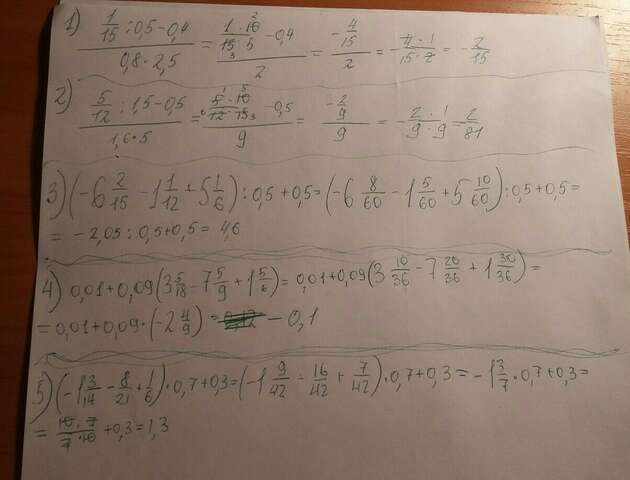 1) (1/15 : 0,5 - 0,4)/(0,8 · 2,5) = ((1 · 10 2)/(15 3 · 5) - 0,4)/2 = (-4/15)/2 = -(4 · 1)/(15 · 2) = -2/15
2) (5/12 : 1,5 - 0,5)/(1,6 · 5) = ((5 1 · 10 5)/(12 6 · 15 3) - 0,5)/9 = (-2/9)/9 = -(2 · 1)/(9 · 9) = 2/81
3) (-6 2/15 - 1 1/12 + 5 1/6) : 0,5 + 0,5 = (-6 8/60 - 1 5/60 + 5 10/60) : 0,5 + 0,5 =
= - 2,05 : 0,5 + 0,5 = 4,6
4) 0,01 + 0,09 (3 5/18 - 7 5/9 + 1 5/6) = 0,01 + 0,09 (3 10/36 - 7 20/36 + 1 30/36) =
= 0,01 + 0,09 · (-2 4/9) = - 0,1
5) (-1 3/14 - 8/21 + 1/6) · 0,7 + 0,3 = (-1 9/42 - 16/42 + 7/42) · 0,7 + 0,3 = -1 3/7 · 0,7 + 0,3 =
= (10 · 7)/(7 · 10) + 0,3 = 1,3